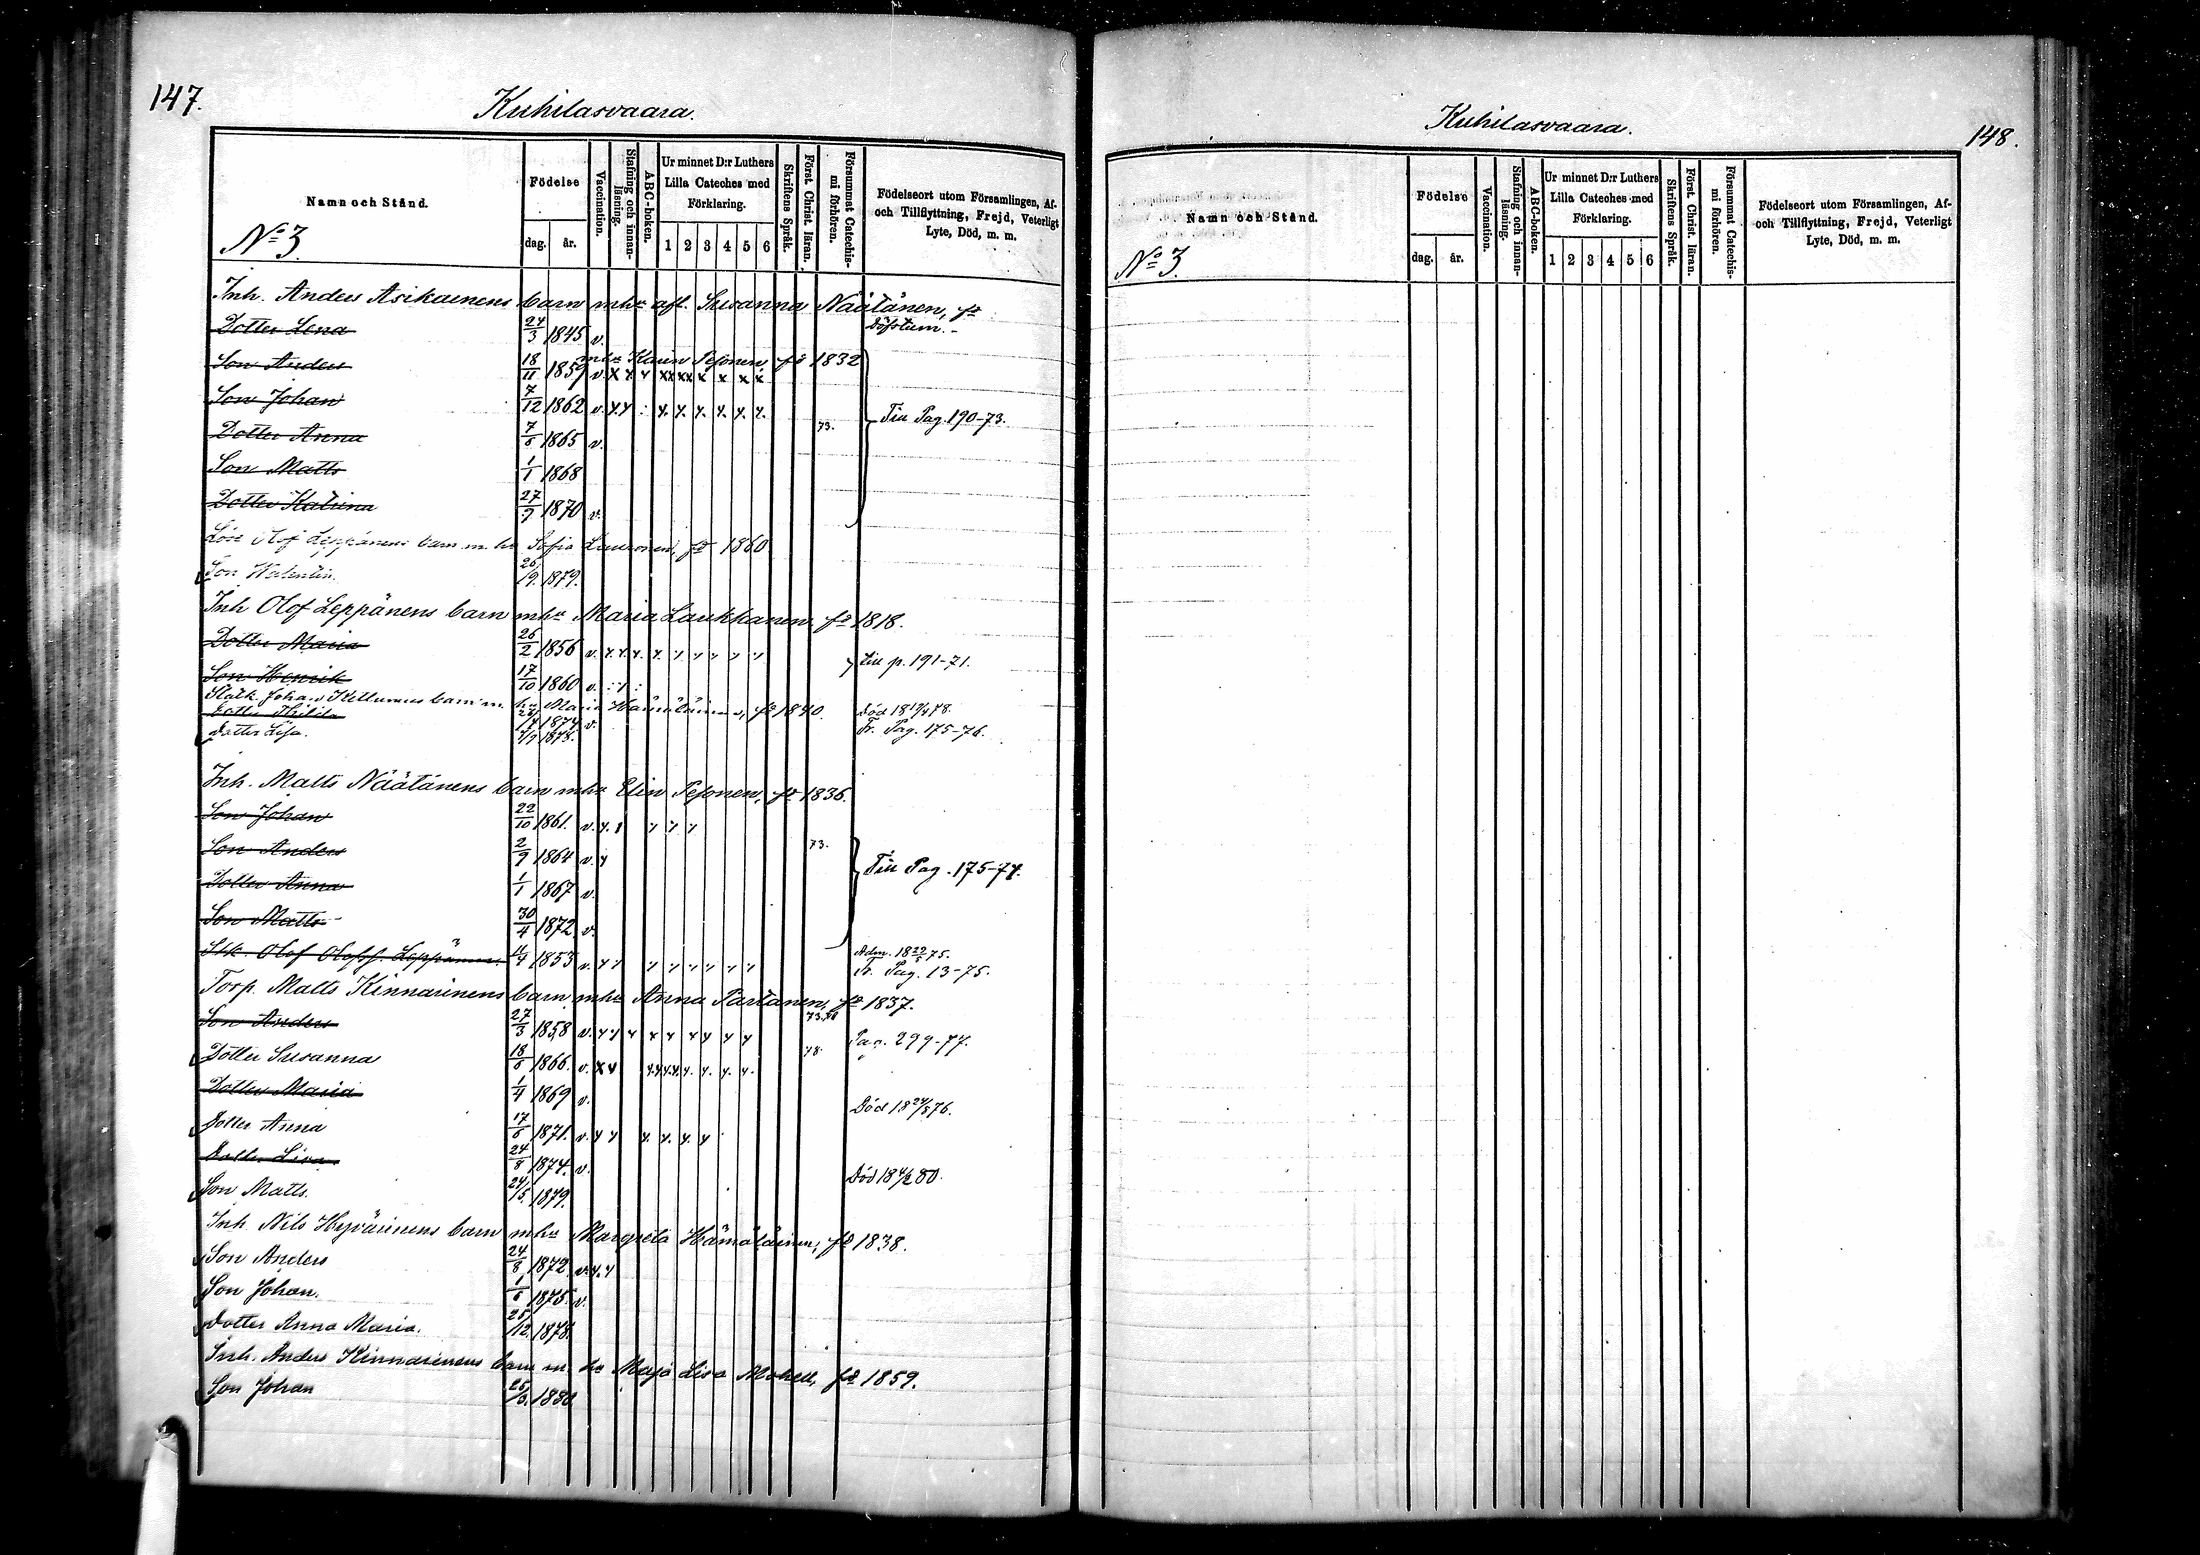 147.
Kuhilasvaara.
Namn och Stånd.
Födelse
dag. år.
Vaccination.
Stafning och innanläsning.
ABC-boken.
Ur minnet D:r Luthers Lilla Cateches med Förklaring.
1 2 3 4 5 6
Skriftens Språk.
Först. Christ. läran.
Försummat Catechismi förhören.
Födelseort utom Församlingen, Af- och Tillflyttning, Frejd, Veterligt Lyte, Död, m. m.
No 3.
Inh. Anders Asikainens barn mhu afl. Susanna Näätänen, fö
Dotter Lena 24/3 1845 v. Döfstum.
mhu Karin Pesonen, fö 1832
Son Anders 18/11 1859 v. x x x xx xx x x x x
Son Johan 7/12 1862 v. x x : x. x. x. x. x. x.
Till Pag. 190-73.
Dotter Anna 7/6 1865 v. 73.
Son Matts 1/1 1868
Dotter Katrina 27/9 1870 v.
Löse Olof Leppänens barn m. hu Sofia fö 1860
Son Walentin. 26/9. 1879.
Inh Olof Leppänens barn mhu Maria Laukkanen, fö 1818.
Dotter Maria 26/2 1856 v. x x x. x. x x x x x
till p. 191-71.
Son Henrik 17/10 1860 v. : x :
Statk. Johan Kettunens barn m. hu Maria Hämäläinen, fö 1840.
Dotter Hilda 1874 v. Död 18 78.
Dotter Lisa. 1878. Fr. Pag. 175-76.
Inh. Matts Näätänens barn mhu Elin Pesonen, fö 1836.
Son Johan 22/10 1861. v. x. x x x x
Son Anders 2/9 1864 v. x 73.
Till Pag. 175-74.
Dotter Anna 1/1 1867 v.
Son Matts 30/4 1872 v.
Stk. Olof Olofss. Leppänen. 11/4 1853 v. x x x x x x x x Adm. 18 22/5 75.
Fr. Pag. 13-75.
Torp. Matts Kinnarinens barn mhu Anna Partanen, fö 1837.
Son Anders 27/3 1858 v. x x x x x x x x x 73.
Pag. 299-77.
Dotter Susanna 18/6 1866. v. x x x.x x.x x. x. x. x. 78.
Dotter Maria 1/4 1869 v. Död 18 24/5 76.
Dotter Anna 17/6 1871. v. x x x. x. x. x
Dotter Lisa 24/8 1874. v. Död 18 4/2 80.
Son Matts. 24/5. 1879.
Inh. Nils Hyvärinens barn mhu Margreta Hämäläinen, fö 1838.
Son Anders 24/8 1872 v. x. x
Son Johan. 1/6 1875. v.
Dotter Anna Maria. 25/12. 1878.
Inh. Anders Kinnarinens barn m. hu Maja Lisa Mohell, fö 1859.
Son Johan 25/3. 1880
Kuhilasvaara.
148.
Namn och Stånd.
Födelse
dag. år.
Vaccination.
Stafning och innanläsning.
ABC-boken.
Ur minnet D:r Luthers Lilla Cateches med Förklaring.
1 2 3 4 5 6
Skriftens Språk.
Först. Christ. läran.
Försummat Catechismi förhören.
Födelseort utom Församlingen, Af- och Tillflyttning, Frejd, Veterligt Lyte, Död, m. m.
No 3.